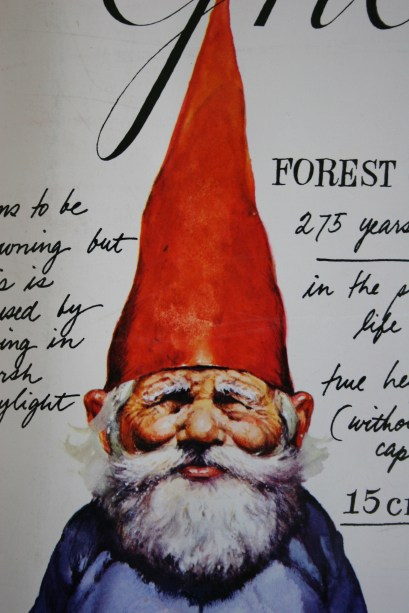 Gn
ns to be
wning but
s is
used by
ing in
rsh
ylight
FOREST
275 years
in the p
life
true he
(withou
cap
15 c